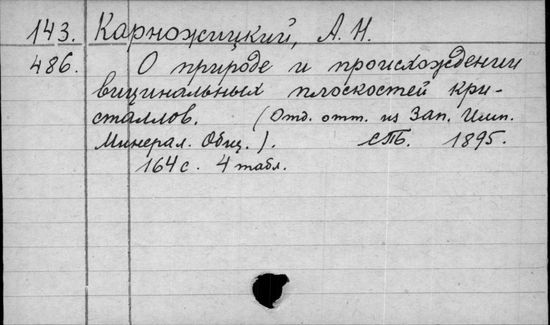 143. Карножицкий, А. Н.
486. О природе и происхождении
вицинальных плоскостей кри-
сталлов. (Отд. отт. из Зап. Имп.
Минерал. Общ.). СПб. 1895.
164 с. 4 табл.